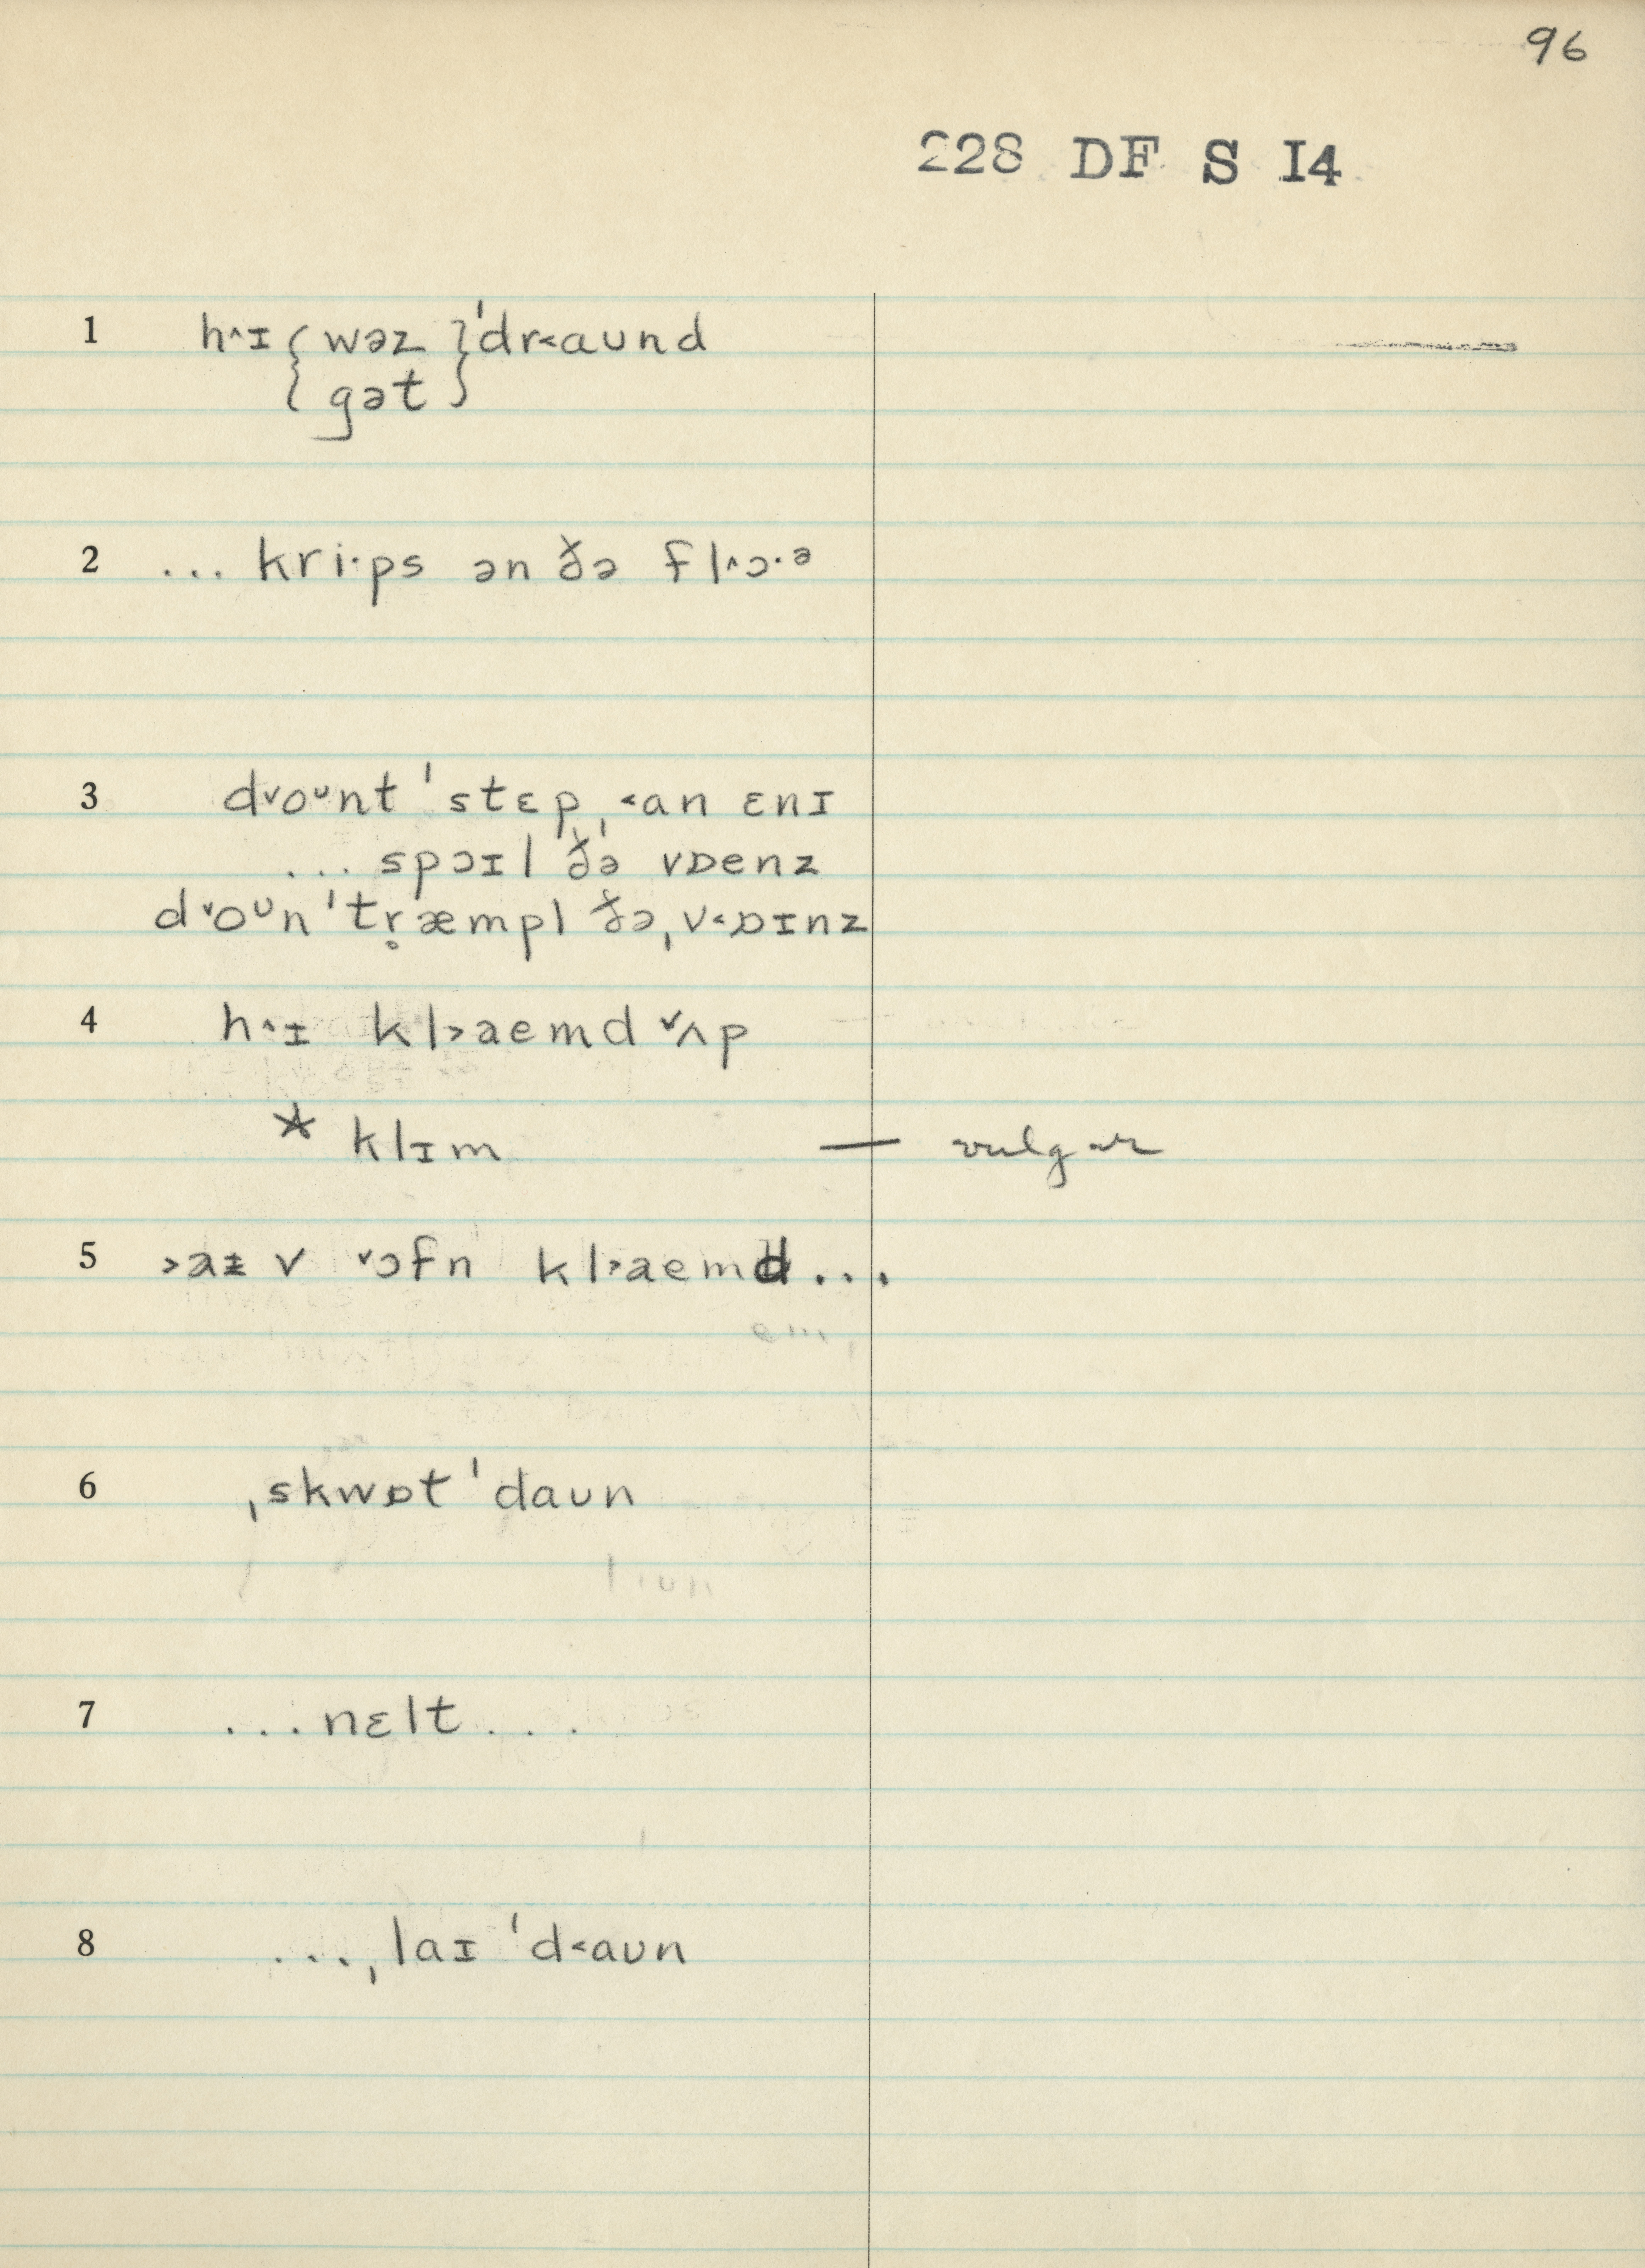 96
228 DF S I4
1 h˄ɪ { wəz } ˈdr˂aʊnd
{ gət }
2 ... kri·ps ən ðə fl˄ɔ·ᵊ
3 d˅oᶷnt ˈstɛp ˌ˂an ɛnɪ
... spɔɪl ðə vɒenz
d˅oᶷn ˈtr̥æmpl ðə ˌv˂ɒɪnz
4 h˄ɪ kl˃aemd ˅ʌp
* klɪm — vulgar
5 ˃aɪ v ˅ɔfn kl˃aemd ...
6 ˌskwɒt ˈdaʊn
7 ... nɛlt ...
8 ... ˌlaɪ ˈd˂aʊn